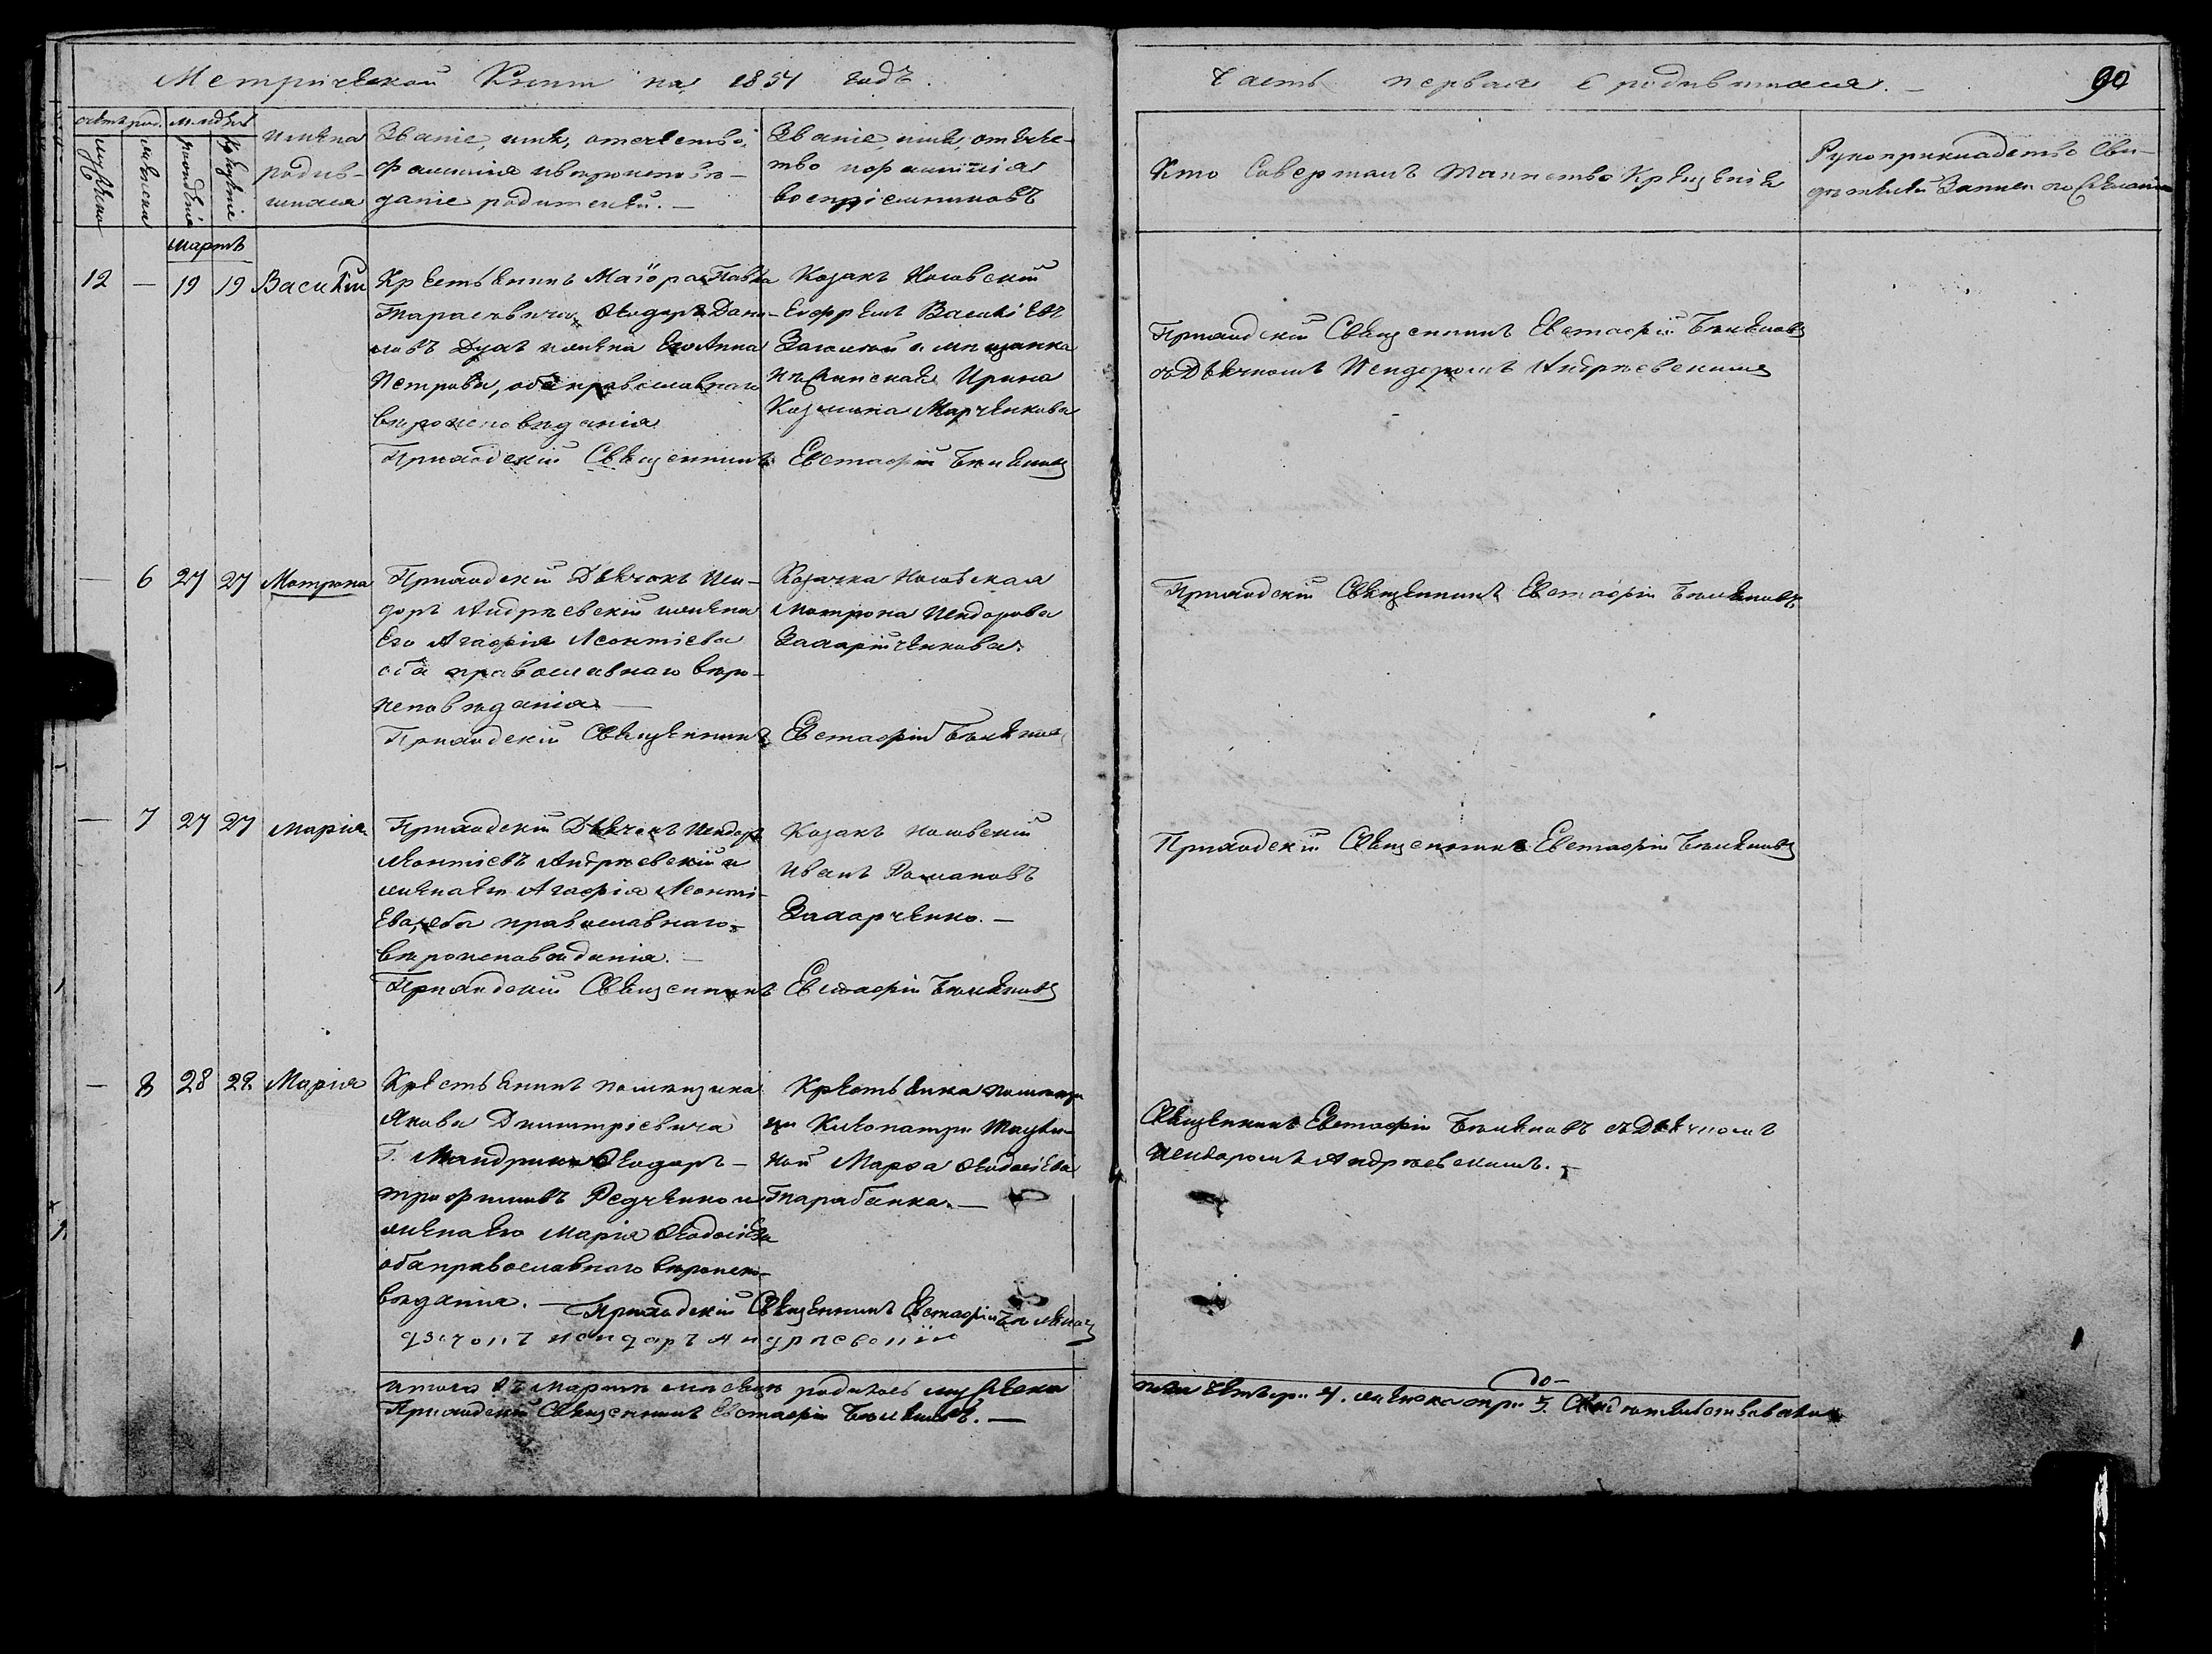 Метрической Книги на 1854 годъ.
Часть первая о родившихся.
90
счетъ род.
м-цъ и д.
мужеска
женска
рожденія
крещенія
имена
родив-
шихся
Званіе, имя, отчество,
фамилія и вѣроисповѣ-
даніе родителей. —
Званіе, имя, отече-
тво и фамилія
воспріемниковъ
Кто Совершалъ Таинство Крещенія
Рукоприкладство Сви-
дѣтелей Записи по желанію
Мартъ
12 — 19 19 Василій
Крестьянинъ Маіора Павла
Тарасовича Ѳеодоръ Дани-
ловъ Духъ и жена Его Анна
Петрова, оба православнаго
вѣроисповѣданія
Приходскій Священникъ Евстафій
Козакъ Носовскій
Ефремъ Василіевъ
и мѣщанка
Нѣжинская Ирина
Козмина Марченкова
Приходскій Священникъ Евстафій
съ Дьячкомъ Исидоромъ Андріевскимъ
— 6 27 27 Матрона
Приходскій Дьячокъ Иси-
доръ Андріевскій и жена
Его Агафія Леонтіева
оба православнаго вѣро-
исповѣданія —
Приходскій Священникъ Евстафій
Козачка Носовская
Матрона Исидорова
Захарійченкова.
Приходскій Священникъ Евстафій
— 7 27 27 Марія
Приходскій Дьячокъ Исидоръ
Леонтіевъ Андріевскій и
жена Его Агафія Леонті-
Ева, оба православнаго
вѣроисповѣданія. —
Приходскій Священникъ Евстафій
Козакъ Носовскій
Иванъ Романовъ
Захарченко. —
Приходскій Священникъ Евстафій
— 8 28 28 Марія
Крестьянинъ помѣщика
Якова Димитріевича
Г. Мандрики Ѳеодоръ —
Трофимовъ Редченко и
жена Его Марія Ѳеодосіева
оба православнаго вѣроиспо-
вѣданія. — Приходскій Священникъ Евстафій
дьячокъ Исидоръ Андріевскій
Крестьянка помѣщи-
цы Клеопатры
Марѳа Ѳеодосіева
Тарабанка. —
Священникъ Евстафій съ Дьячкомъ
Исидоромъ Андріевскимъ. —
Итого въ Мартѣ мѣсяцѣ родилось мужеска
пола четыре 4. женска три Свидѣтельствовалъ
Приходскій Священникъ Евстафій —